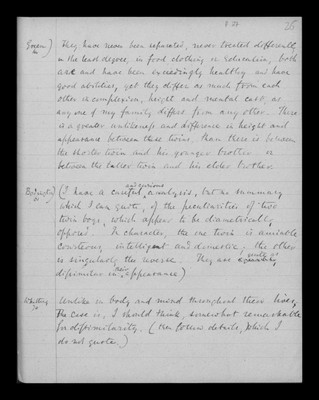 25
Green) They have never been separated, never treated differently
in the least degree, in food clothing or education, both
are and have been exceedingly healthy and have
good abilities, yet they differ as much from each
other in complexion, height and mental cast, as
any one of my family differs from any other. There
is a greater unlikeness and difference in height and
appearance between these twins, than there is between
the shorter twin and his younger brother or
between the taller twin and his elder brother.
(I have a careful and curious analysis, but no summary
which I can quote, of the peculiarities of two
twin boys, which appear to be diametrically
opposed. In character, the one twin is amiable
courteous intelligent and domestic; the other
is singularly the reverse. They are
dissimilar in appearance)
Whitting Unlike in body and mind throughout their lives.
The case is, I should think, somewhat remarkable
for dissimilarity. (then follow details, which I
do not quote.)